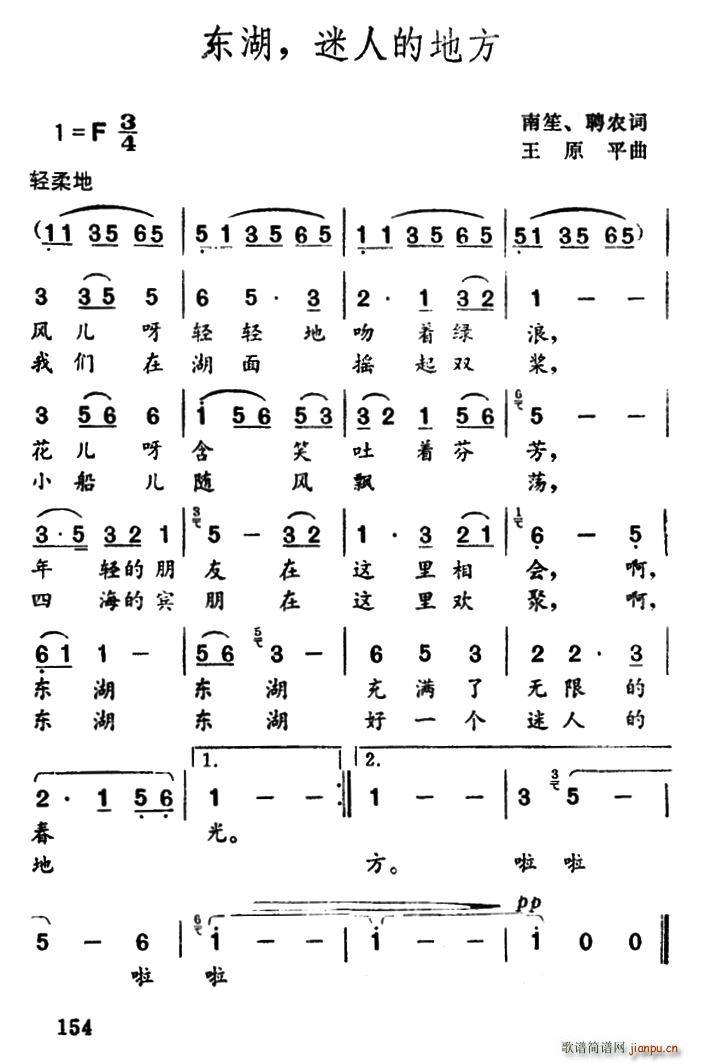 东湖，迷人的地方
1=F 3/4
南笙、聘农词
王原平曲
轻柔地
(11 35 65 | 51 35 65 | 11 35 65 | 51 35 65)
3 35 5 | 6 5· 3 | 2· 1 32 | 1 — — |
风儿呀轻轻地吻着绿浪，
我们在湖面摇起双桨，
3 56 6 | i 56 53 | 32 1 56 | 6 5 — — |
花儿呀含笑吐着芬芳，
小船儿随风飘荡，
3·5 32 1 | 3 5 — 32 | 1· 3 21 | 1 6 — 5 |
年轻的朋友在这里相会，啊，
四海的宾朋在这里欢聚，啊，
61 1 — | 56 5 3 — | 6 5 3 | 2 2· 3 |
东湖东湖充满了无限的
东湖东湖好一个迷人的
1. 2.
2· 1 56 | 1 — — :| 1 — — | 3 3 5 — |
春光。
地方。啦啦
pp
5 — 6 | 6 i — — | i — — | i 0 0 ‖
啦啦
154
歌谱简谱网
jianpu.cn